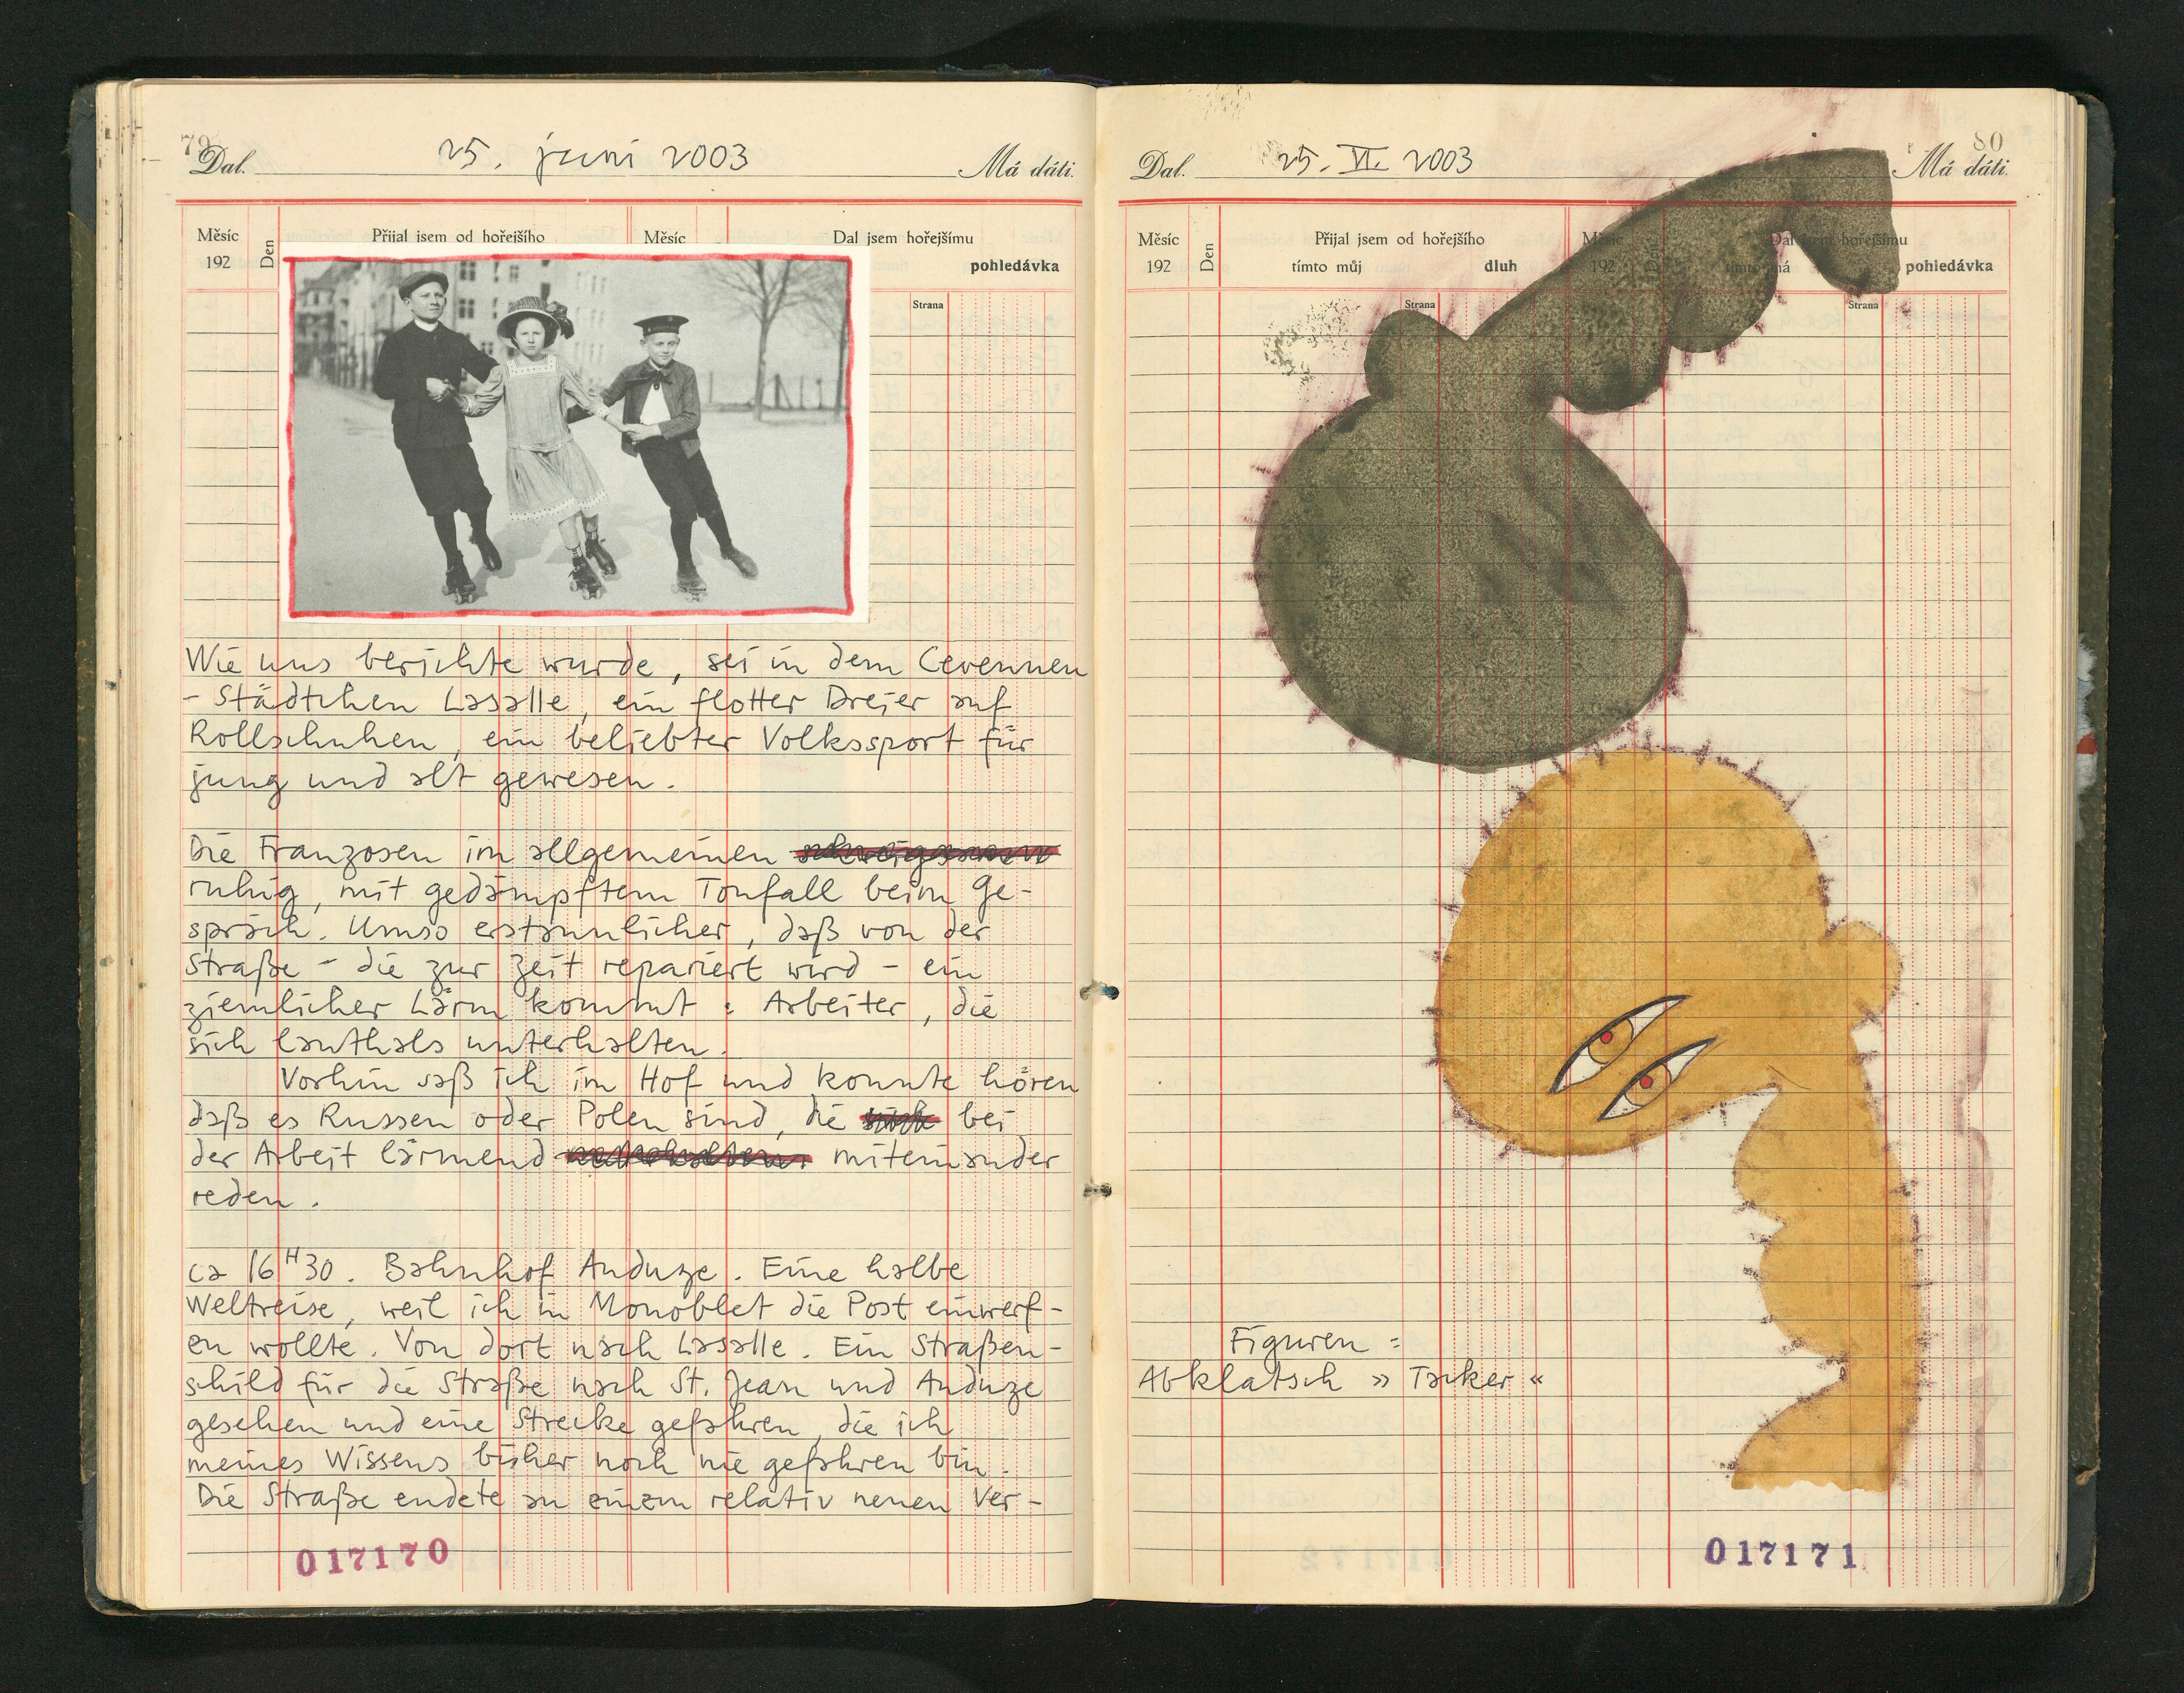 79
Dal. 25. juni 2003 Má dáti.
Měsíc Den Přijal jsem od hořejšího Měsíc Dal jsem hořejšímu
192 pohledávka
Strana
Wie uns berichte wurde, sei in dem Cevennen
- Städtchen Lasalle, ein flotter Dreier auf
Rollschuhen, ein beliebter Volkssport für
jung und alt gewesen.
Die Franzosen im allgemeinen
ruhig, mit gedämpftem Tonfall beim Ge-
spräch. Umso erstaunlicher, daß von der
Straße - die zur Zeit repariert wird - ein
ziemlicher Lärm kommt : Arbeiter, die
sich lauthals unterhalten.
Vorhin saß ich im Hof und konnte hören
daß es Russen oder Polen sind, die bei
der Arbeit lärmend miteinander
reden.
ca 16 H 30. Bahnhof Anduze. Eine halbe
Weltreise, weil ich in Monoblet die Post einwerf-
en wollte. Von dort nach Lasalle. Ein Straßen-
schild für die Straße nach St. Jean und Anduze
gesehen und eine Strecke gefahren, die ich
meines Wissens bisher noch nie gefahren bin.
Die Straße endete an einem relativ neuen Ver-
017170
80
Dal. 25. VI. 2003 Má dáti.
Měsíc Den Přijal jsem od hořejšího Měsíc Den Dal jsem hořejšímu
192 tímto můj dluh 192 tímto má pohledávka
Strana Strana
Figuren :
Abklatsch » Tacker «
017171